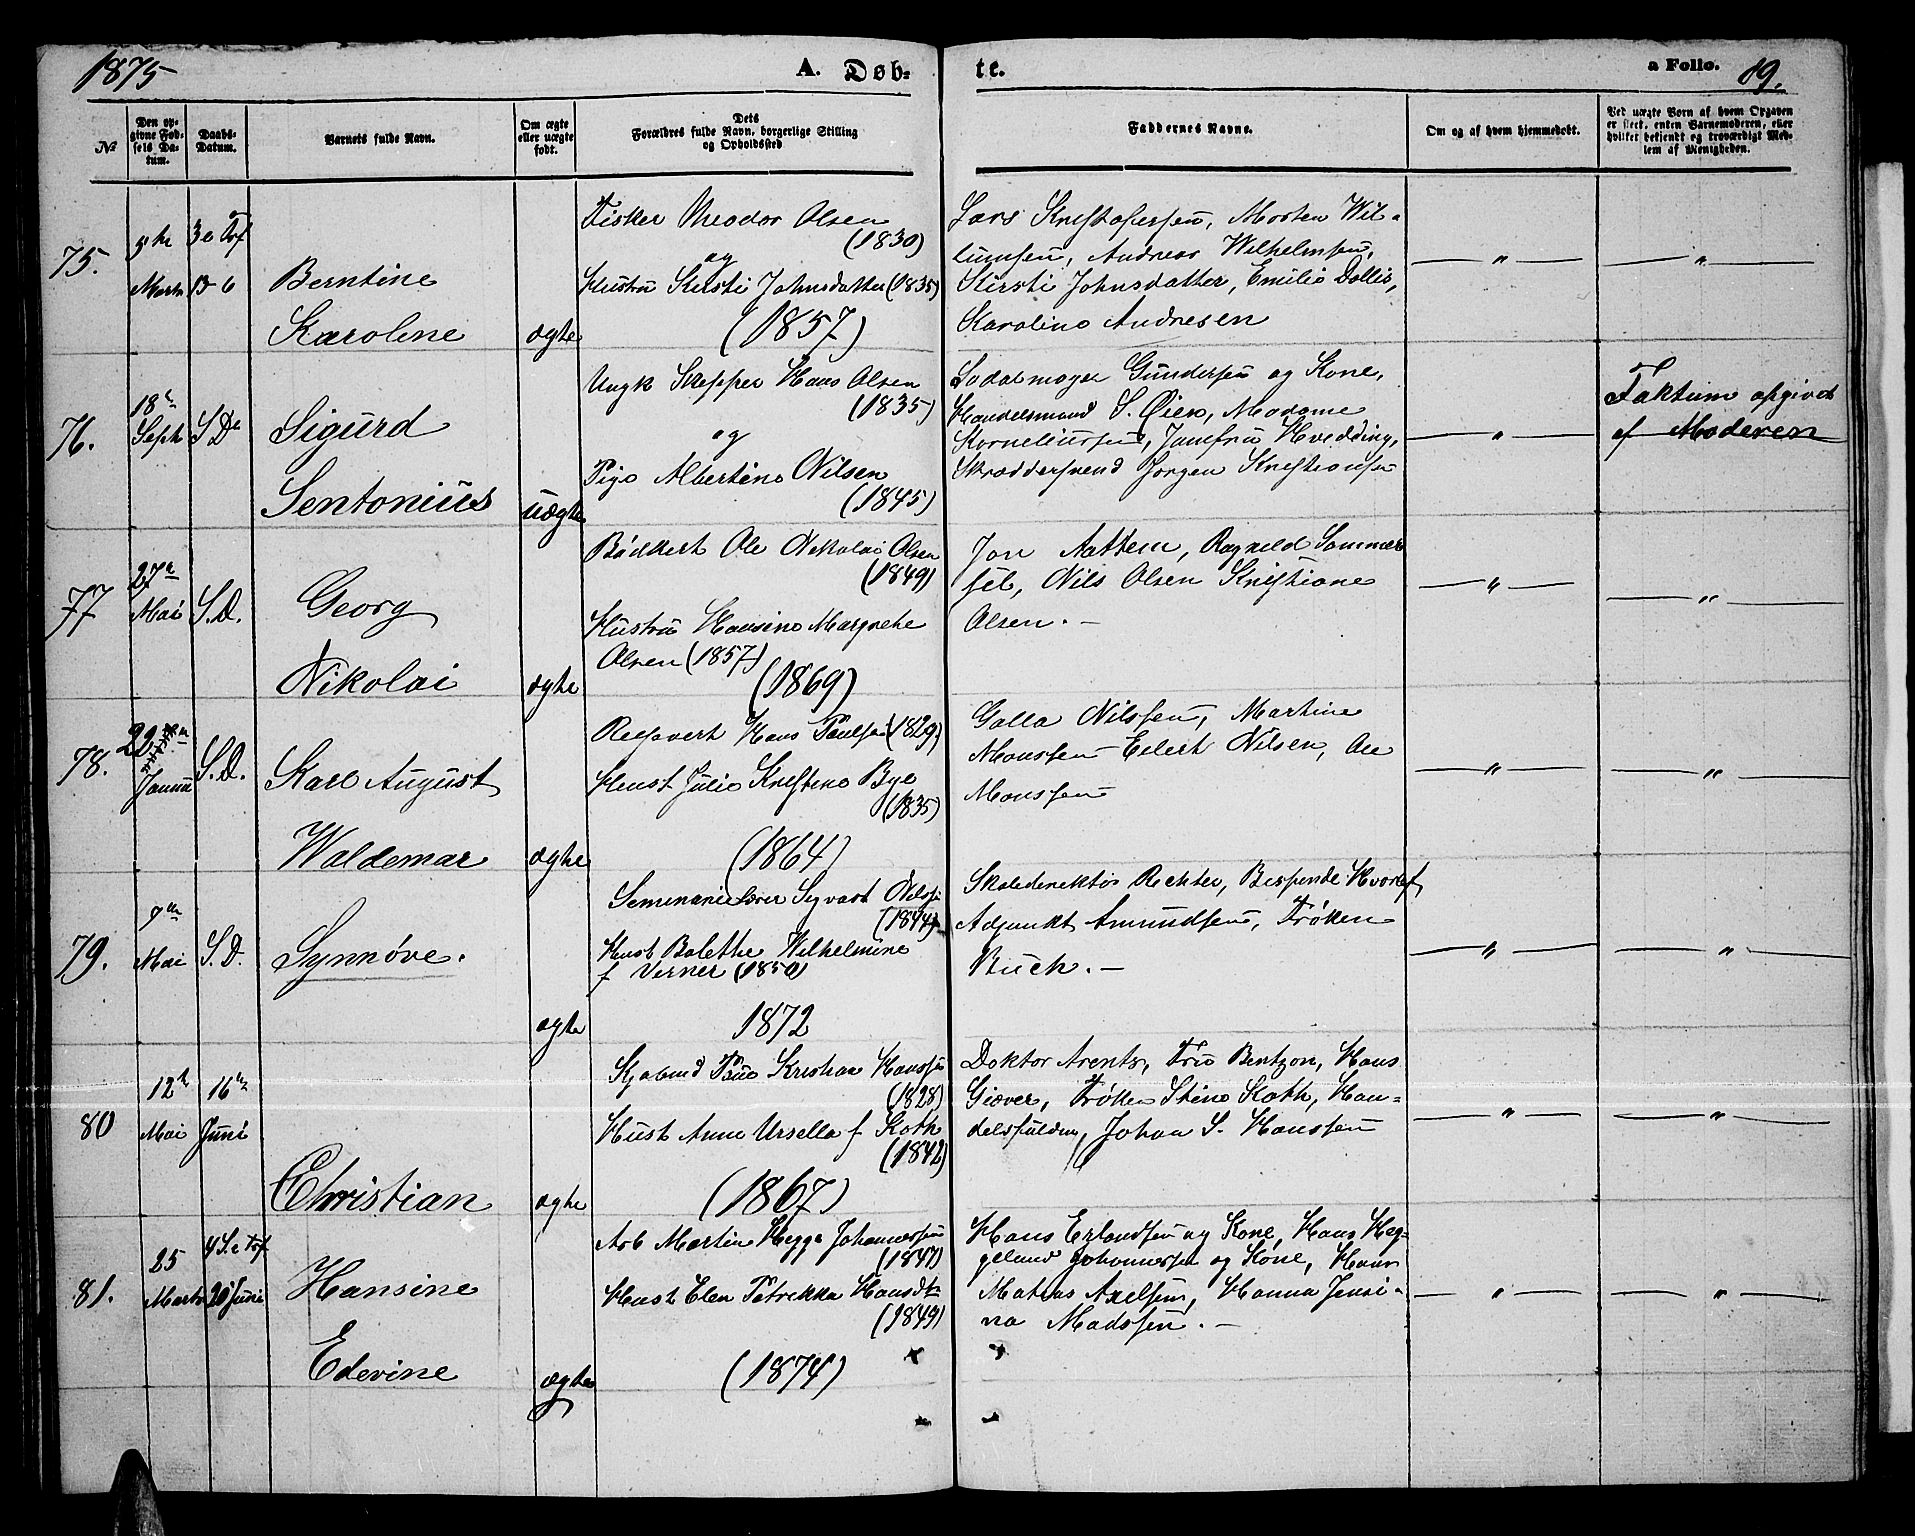 1875
A. Døb-
te.
a Folio. 89.
№
Den op-
givne Fød-
sels Da-
tum.
Daabs-
Datum.
Barnets fulde Navn.
Om ægte
eller uægte
født.
Dets
Forældres fulde Navn, borgerlige Stilling
og Opholdssted.
Faddernes Navne.
Om og af hvem hjemmedøbt.
Ved uægte Børn af hvem Opgaven
er skeet, enten Barnemoderen, eller
hvilket bekjendt og troværdigt Med-
lem af Menigheden.
75.
5te
Marts
3 e Trf
13-6
Berntine
Karoline
ægte
Fisker Theodor Olsen
(1830)
og
Hustru Kirsti Johnsdatter (1835)
(1857)
Lars Kristofersen, Morten Wil-
lumsen, Andreas Wilhelmsen,
Kirsti Johnsdatter, Emilie Dollis,
Karoline Andresen
— " —
— " —
76.
18de
Septb
S D
Sigurd
Sentonius
uægte
Ungk Skipper Hans Olsen
(1835)
og
Pige Albertine Nilsen
(1845)
Gundersen og Kone,
Handelsmand S. Øien, Madame
Korneliussen, Jomfru Hvedding,
Skræddersvend Jørgen Kristiansen
— " —
Faktum opgivet
af Moderen
77
27de
Mai
S.D.
Georg
Nikolai
ægte
Bødkert Ole Nikolai Olsen
(1849)
Hustru Hansine Margrethe
Olsen (1857)
(1869)
Jon Aattem, Ragnild Sommer
sel, Nils Olsen Kristiane
Olsen. —
— " —
— " —
78.
22
Januar
S.D.
Karl August
Waldemar
ægte
Hans Paulsen (1829)
Hust Julie Kristine Bye
(1835)
(1864)
Galla Nilssen, Martine
Monssen Eilert Nilsen, Ole
Monssen
— " —
— " —
79.
7de
Mai
S.D.
Synnøve.
ægte
Seminarielærer Syvert Nilsen
(1844)
Hust Bolethe Wilhelmine
f Verner (1850)
1872
Skoledirektør Richter, Bispinde Hvoslef,
Adjunkt Amundsen, Frøken
Buch. —
— " —
— " —
80
12te
Mai
16de
Juni
Christian
ægte
Kristian Hanssen
(1828)
Hust Anne Ursella f Koth
(1842)
(1867)
Doktor Arents, Fru Bentzon, Hans
Giæver, Frøken Stine Koth, Han-
delsfuldm, Johan S. Hanssen
— " —
— " —
81.
25
Marts
4 S. e Trf
20 Juni
Hansine
Edevine
ægte
Arb Martin Hegge Johannessen
(1847)
Hust Elen Petrikka Hansdt
(1849)
(1874)
Hans Erlandsen og Kone, Hans Heg-
geland Johannessen og Kone, Hans
Matias Axelsen, Hanna Jensi-
na Madssen. —
— " —
— " —